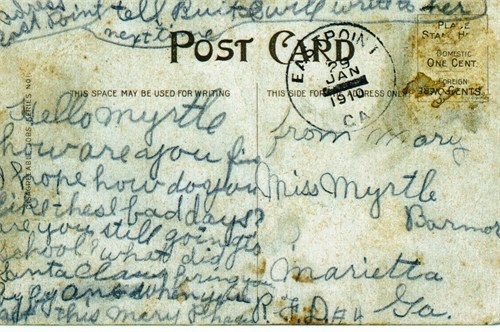 adress
East Point tell Buit I will write to her
next time
POST CARD
EAST POINT
29
JAN
1910
GA.
PLACE
STAMP HERE
DOMESTIC
ONE CENT.
FOREIGN
TWO CENTS
THIS SPACE MAY BE USED FOR WRITING
THIS SIDE FOR ADDRESS ONLY
Hello Myrtle
how are you fine
I hope how do you
like these bad days?
are you still going to
school? what did
Santa Claus bring you
by by ans when you
get this Mary
from Mary
Miss Myrtle
Marietta
R.F.D. #4 Ga.